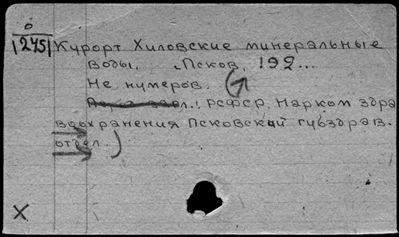 0
1245
Курорт Хиловские минеральные
воды. Псков, 192...
Не нумеров.
РСФСР. Нарком здра
воохранения Псковский губздрав.
отдел.)
X